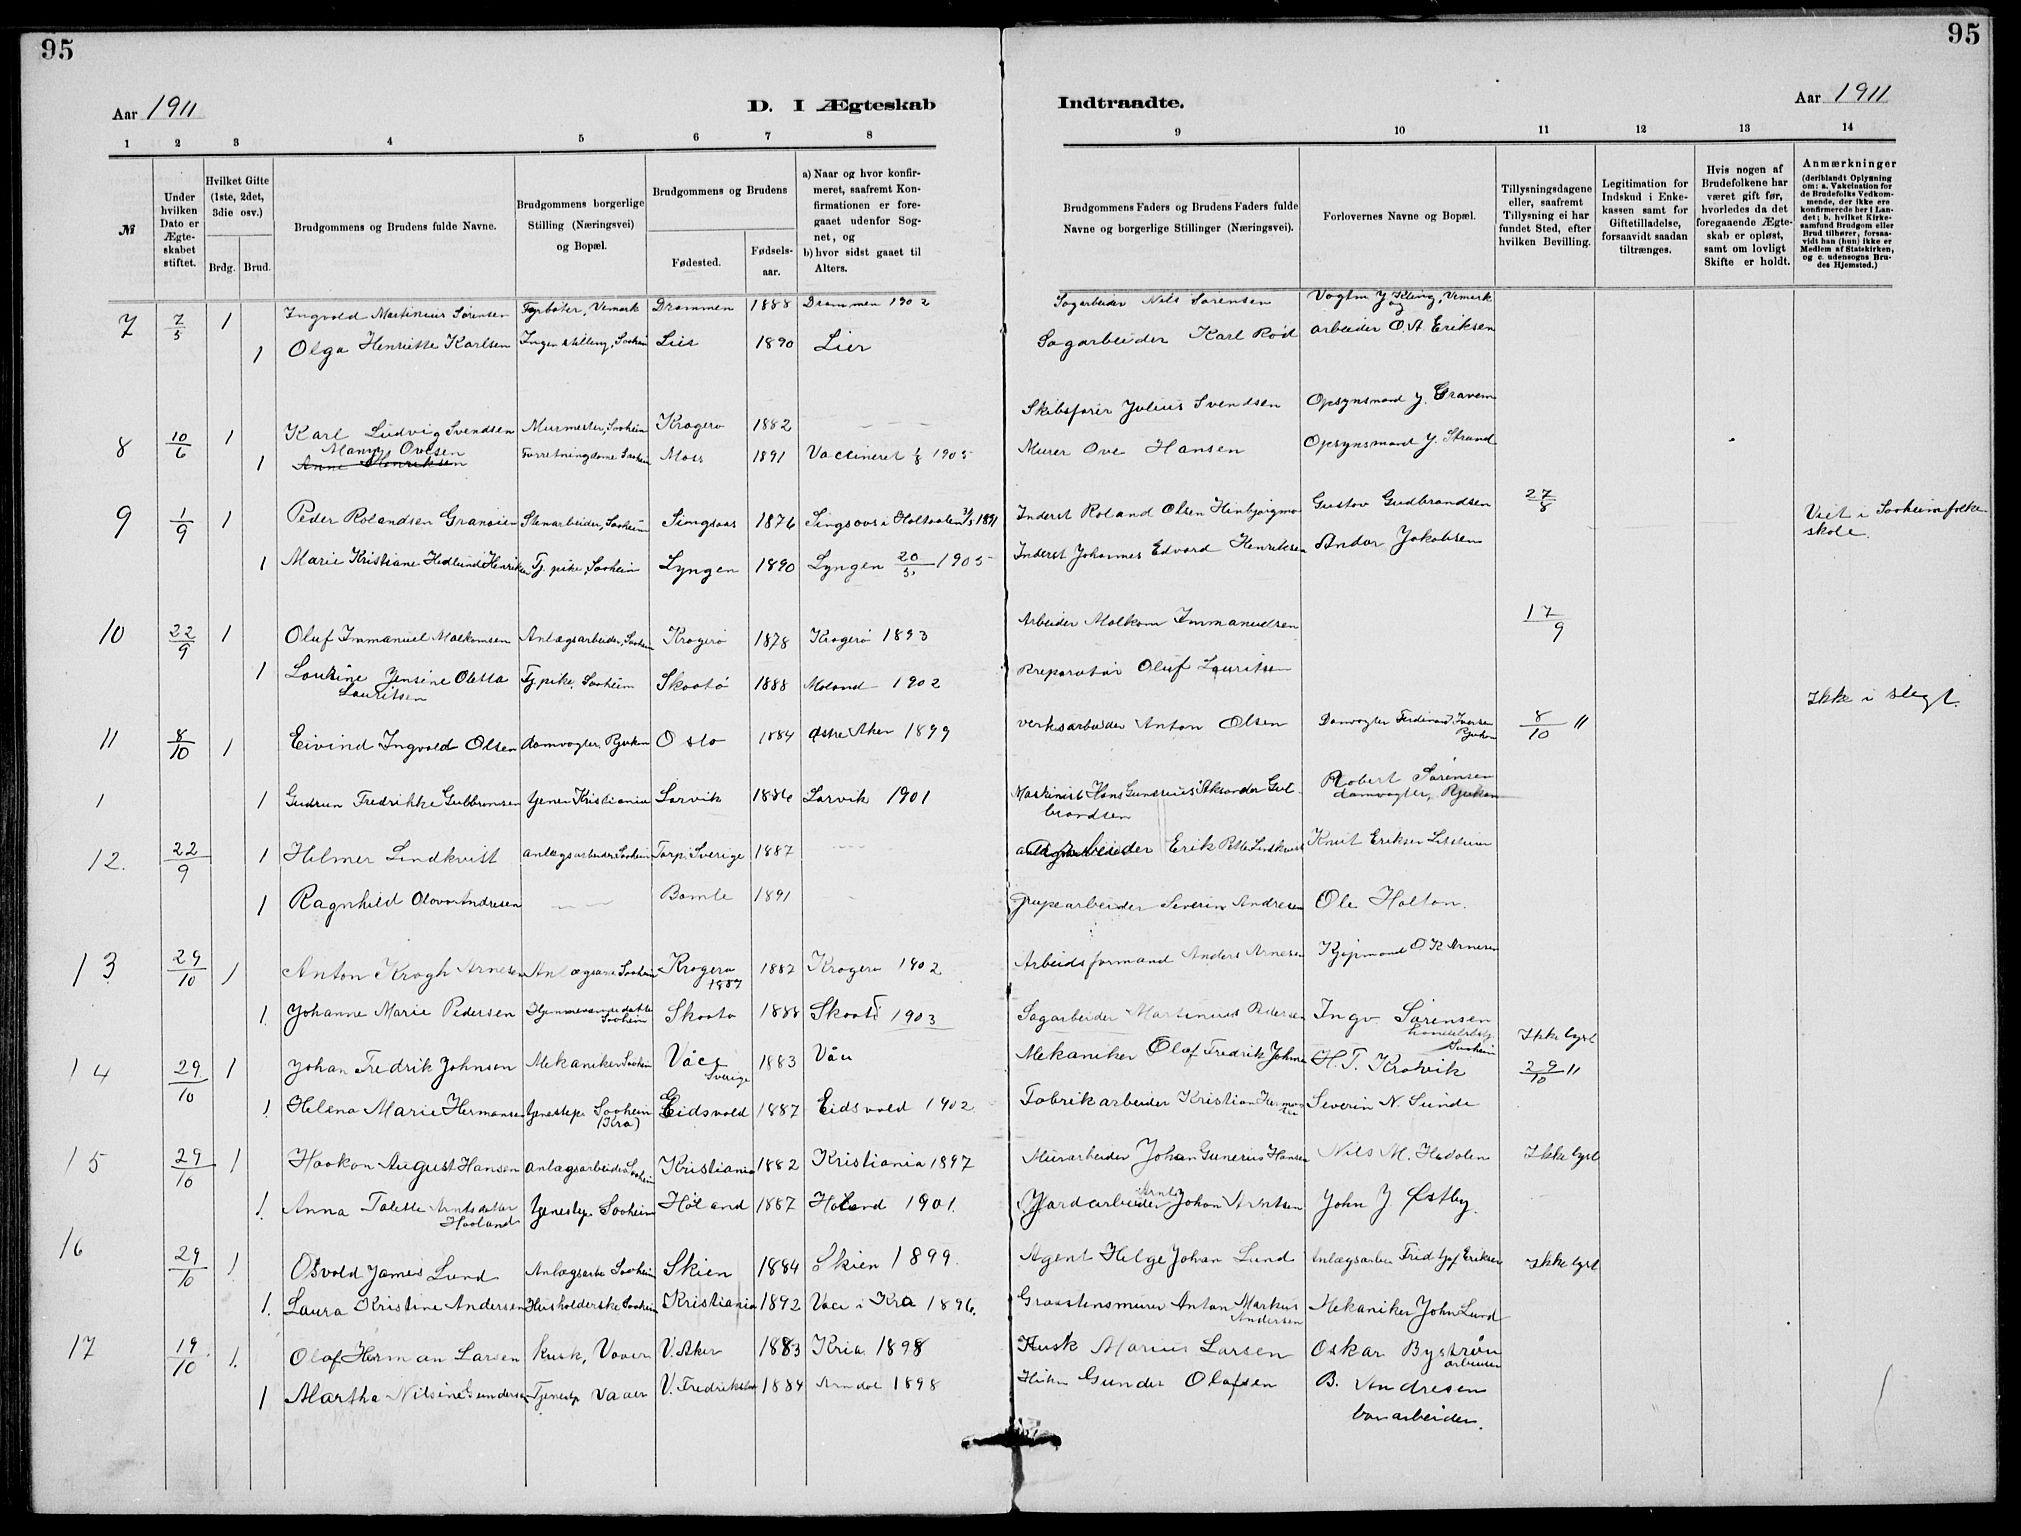 95
95
Aar 1911
D. I Ægteskab
Indtraadte.
Aar 1911
1 2 3 4 5 6 7 8 9 10 11 12 13 14
№
Under hvilken Dato er Ægteskabet stiftet.
Hvilket Gifte (1ste, 2det, 3die osv.)
Brdg. Brud.
Brudgommens og Brudens fulde Navne.
Brudgommens borgerlige Stilling (Næringsvei) og Bopæl.
Brudgommens og Brudens
Fødested.
Fødsels-aar.
a) Naar og hvor konfirmeret, saafremt Konfirmationen er foregaaet udenfor Sognet, og
b) hvor sidst gaaet til Alters.
Brudgommens Faders og Brudens Faders fulde Navne og borgerlige Stillinger (Næringsvei).
Forlovernes Navne og Bopæl.
Tillysningsdagene eller, saafremt Tillysning ei har fundet Sted, efter hvilken Bevilling.
Legitimation for Indskud i Enkekassen samt for Giftetilladelse, forsaavidt saadan tiltrænges.
Hvis nogen af Brudefolkene har været gift før, hvorledes da det foregaaende Ægteskab er opløst, samt om lovligt Skifte er holdt.
Anmærkninger
(deriblandt Oplysning om: a. Vakcination for de Brudefolks Vedkommende, der ikke ere konfirmerede her i Landet; b. hvilket Kirkesamfund Brudgom eller Brud tilhører, forsaavidt han (hun) ikke er Medlem af Statskirken, og c. udensogns Brudes Hjemsted.)
7 7/5 1 Ingvold Martinius Sørensen Fyrbøter, Vemork Drammen 1888 Drammen 1902 Sagarbeider Nils Sørensen Vogtm J Kleing, Vemork
1 Olga Henriette Karlsen Ingen stilling, Saaheim Lier 1890 Lier Sagarbeider Karl Rød og arbeider O. A. Eriksen
8 10/6 1 Karl Ludvig Svendsen Murmester, Saaheim Kragerø 1882 Skibsfører Julius Svendsen Opsynsmand J. Gravem
1 Ovesen Anne Henriksen Saaheim Moss 1891 Vaccineret 1/8 1905 Murer Ove Hansen Opsynsmand J. Strand
9 1/9 1 Peder Rolandsen Granøien Stenarbeider, Saaheim Singsaas 1876 Singsaas i Holtaalen 1891 Inderst Roland Olsen Gustav Gudbrandsen 27/8 Viet i Saaheim folkeskole.
1 Marie Kristiane Hedlund Henriksen Tj. pike, Saaheim Lyngen 1890 Lyngen 20/5 1905 Inderst Johannes Edvard Henriksen Andor Jakobsen
10 22/9 1 Oluf Immanuel Malkomsen Anlægsarbeider, Saaheim Kragerø 1878 Kragerø 1893 Arbeider Malkom Immanuelsen 17/9
1 Lousine Jensine Oletta Lauritsen Tj. pike, Saaheim Skaatø 1888 Moland 1902 Preparatør Oluf Lauritsen
Ikke i slegt.
11 8/10 1 Eivind Ingvald Olsen damvogter, Rjukan Oslo 1884 østre Aker 1899 verksarbeider Anton Olsen Damvogter Ferdinand Iversen Rjukan 8/10 11
1 1 Gudrun Fredrikke Gulbransen tjener Kristiania Larvik 1886 Larvik 1901 Maskinist Hans Gunerius Aksander Gulbrandsen Robert Sørensen damvogter, Rjukan
12. 22/9 1 Hilmer Lindkvist anlægsarbeider Saaheim Torp, Sverige 1887 arbeider Erik Lindkvist Knut Eriksen
1 Ragnhild Olava Andresen Bamle 1891 Grupearbeider Severin Andresen Ole Holtan.
13 29/10 1 Anton Krogh Arnesen Anlægsarb Saaheim Kragerø 1887 1882 Kragerø 1902 Arbeidsformand Anders Arnesen Kjøpmand O K Arnesen
1. Johanne Marie Pedersen Hjemmeværende datter Saaheim Skaatø 1888 Skaatø 1903 Sagarbeider Martinius Pedersen Ingv. Sørensen Saaheim
Ikke lyst
14 29/10 1 Johan Fredrik Johnsen Mekaniker Saaheim Sverige 1883 Mekaniker Olaf Fredrik Johnsen H. T. Krosvik 29/10 11
1. Helena Marie Hermansen tjenestep. Saaheim (Kra) Eidsvold 1887 Eidsvold 1902. Fabrikarbeider Kristian Hermansen Severin N. Sunde
15 29/10 1 Haakon August Hansen anlægsarbeider Saaheim Kristiania 1882 Kristiania 1897 Murarbeider Johan Gunerius Hansen Nils M. Hedalen Ikke lyst
1. Anna Talette Arntsdatter Haaland tjenestep. Saaheim Høland 1887 Høland 1901. Jordarbeider Johan Arntsen John J Østby.
16 29/10 1. Osvald James Lund Anlægsarbe Saaheim Skien 1884 Skien 1899. Agent Helge Johan Lund Anlægsarbei Fridtjof Eriksen Ikke lyst
1. Laura Kristine Andersen Husholderske Saaheim Kristiania 1892 Vacc i Kra 1896. Graastensmurer Anton Markus Andersen Mekaniker John Lund
17 19/10 1. Olaf Herman Larsen Kusk, Vaaer V. Aker 1883 Kria 1898 Kusk Marius Larsen Oskar Bystrøm arbeider
1 Martha Nilsine Gundersen Tjenestp Vaaer V. Fredrikstad 1884 Arndal 1898 Gunder Olafsen B. Andresen banarbeider.